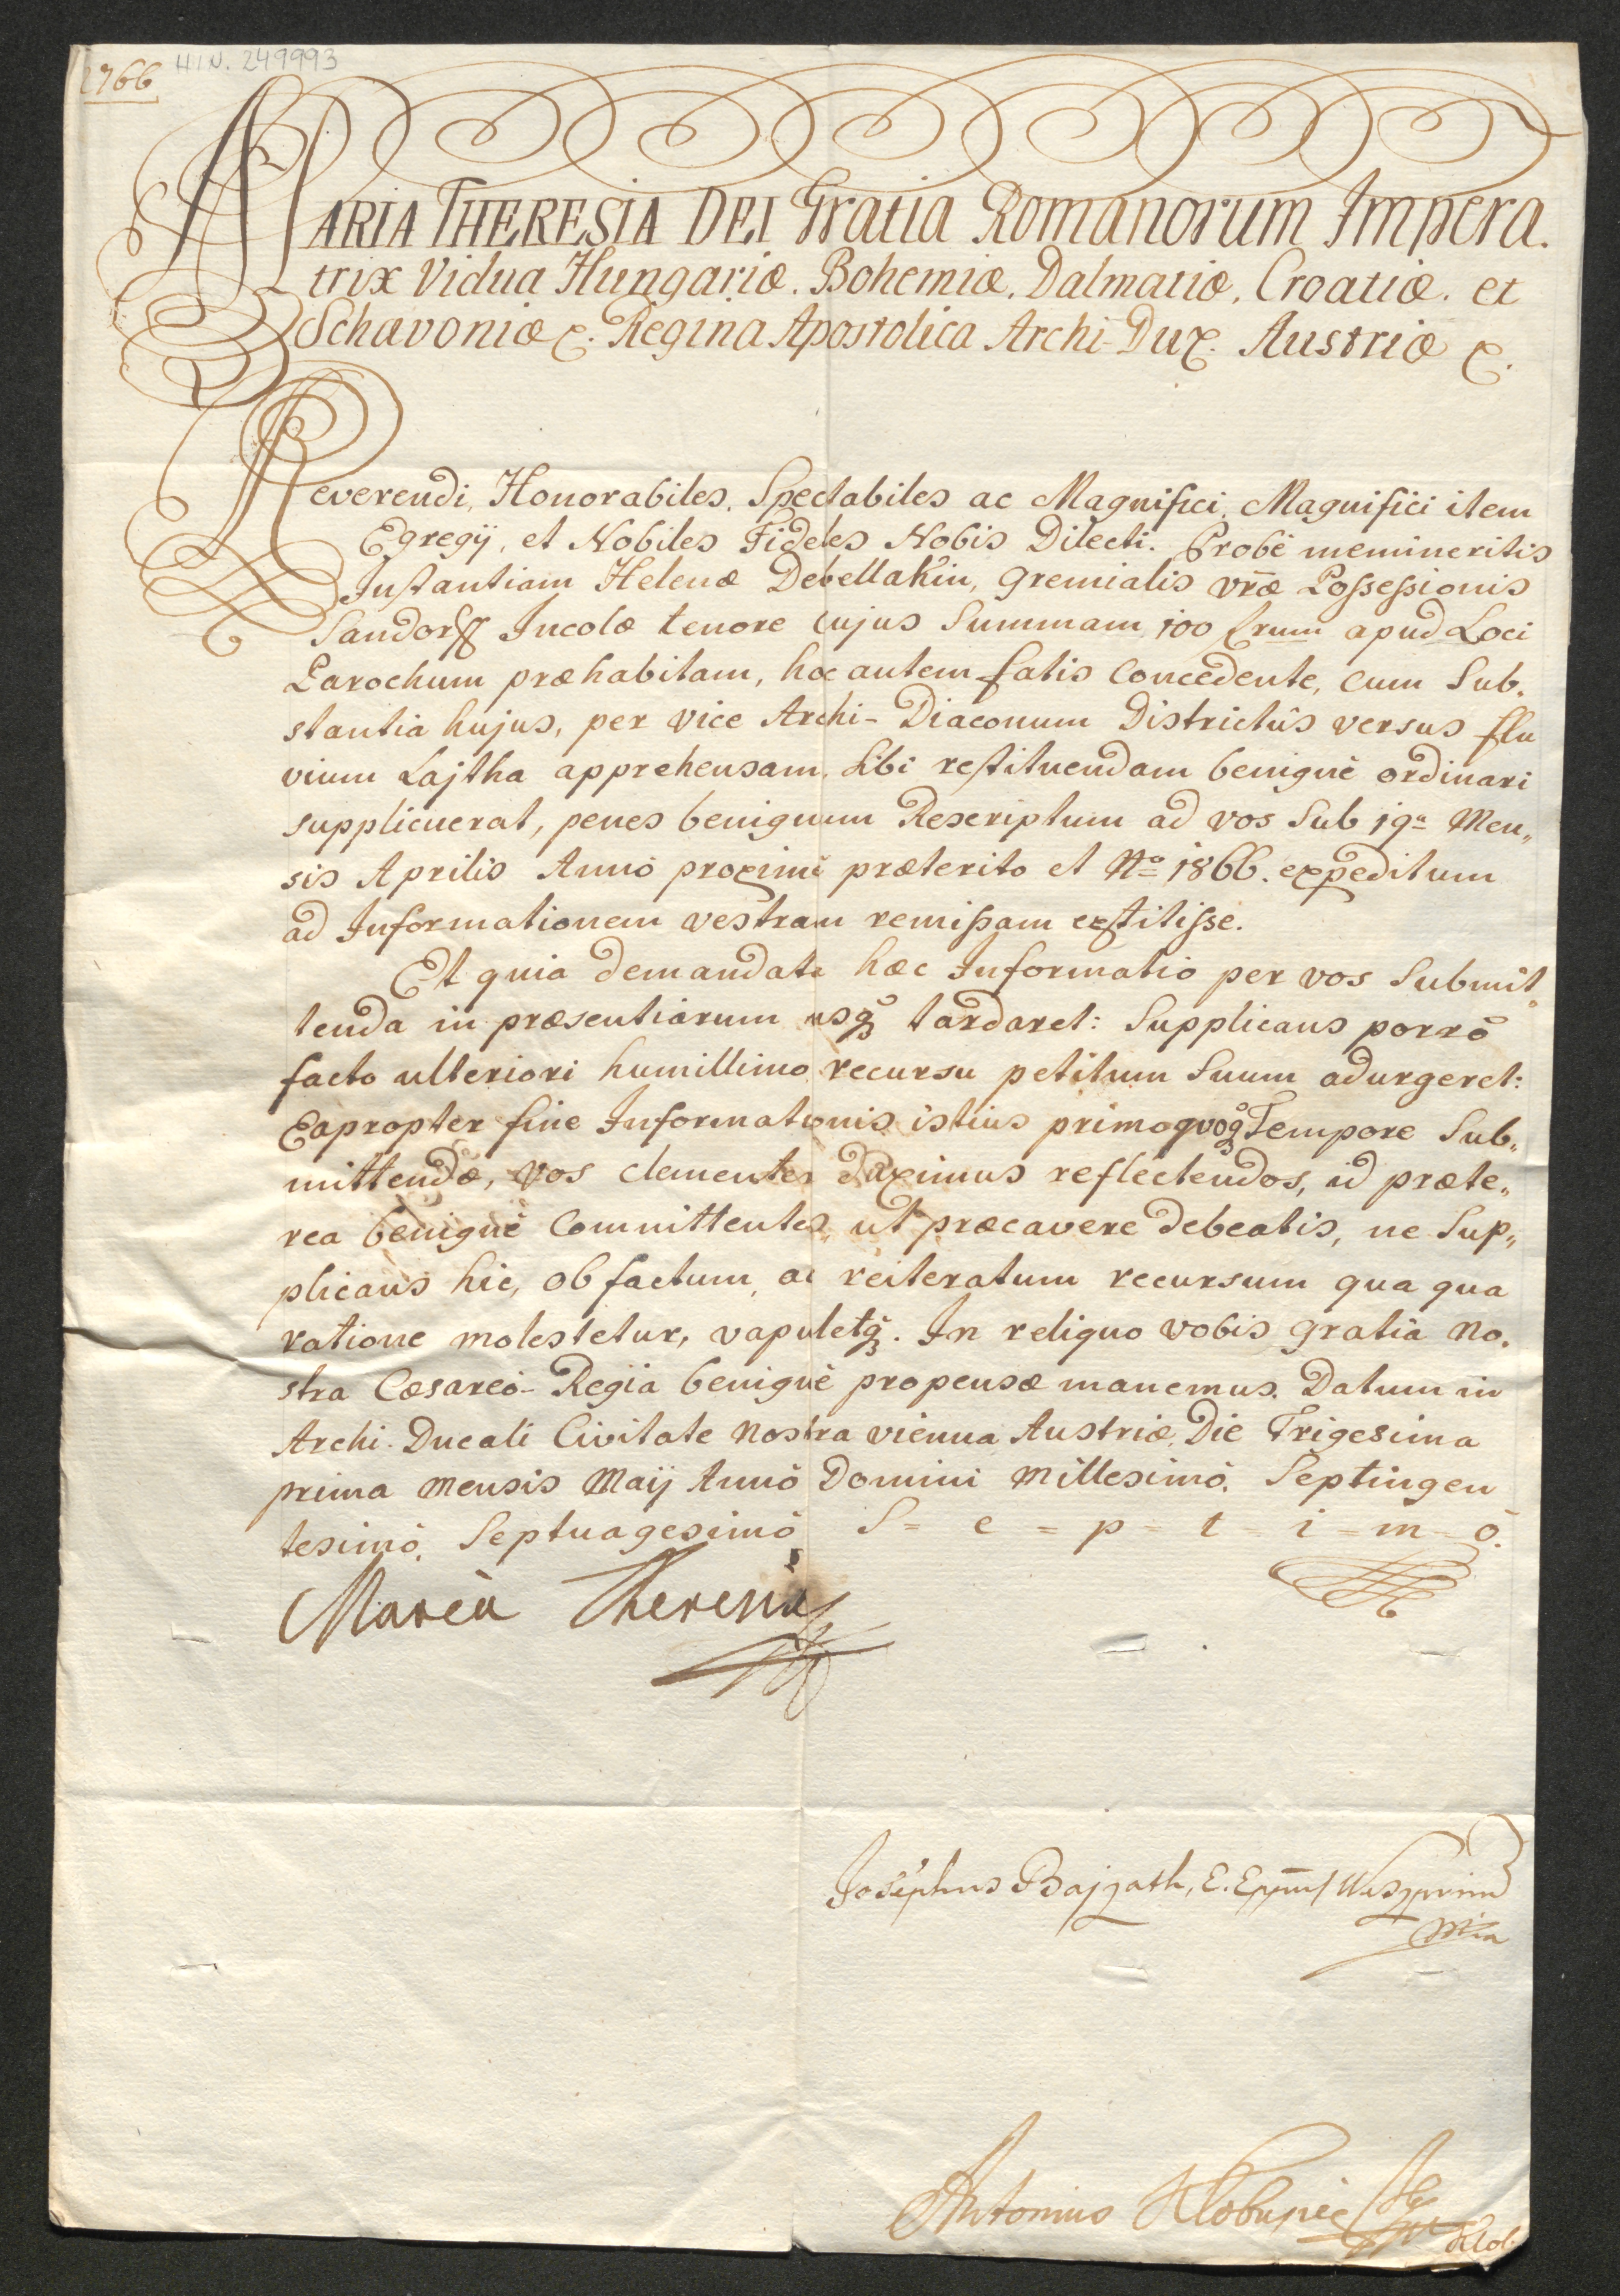 1766 HIN. 249993
MARIA THERESIA DEI Gratia Romanorum Impera.
trix Vidua Hungariæ. Bohemiæ. Dalmatiæ, Croatiæ. et
Schavoniæ &. Regina Apostolica Archi-Dux. Austriæ &.
Reverendi, Honorabiles, Spectabiles ac Magnifici, Magnifici item
Egregij, et Nobiles Fideles Nobis Dilecti. Probè memineritis
Instantiam Helenæ Debellakin, gremialis vr̃æ Possessionis
Sandorff Incolæ tenore cujus Summam 100 frum apud Loci
Parochum præhabitam, hoc autem fatis concedente, cum Sub.
stantia hujus, per vice Archi-Diaconum Districtûs versus flu
vium Lajtha apprehensam, sibi restituendam benignè ordinari
supplicuerat, penes benignum Rescriptum ad vos Sub 19a Men„
sis Aprilis Annô proximè præterito et No 1866. expeditum
ad Informationem vestram remissam extitisse.
Et quia demandata hæc Informatio per vos Submit
tenda in præsentiarum usq̃ tardaret: Supplicans porrò
facto ulteriori humillimo recursu petitum Suum adurgeret:
Eapropter fine Informationis istius primoquoq̃ Tempore Sub„
mittendæ, vos clementer duximus reflectendos, id præte„
rea benignè Committentes, ut præcavere debeatis, ne Sup„
plicans hic, ob factum, ac reiteratum recursum qua qua
ratione molestetur, vapuletq̃. In reliquo vobis gratia No.
stra Cæsareo-Regia benignè propensæ manemus. Datum in
Archi-Ducali Civitate Nostra vienna Austriæ, Die Trigesima
prima Mensis Maij Annô Domini Millesimô. Septingen
tesimô, Septuagesimô S = e = p = t i = m = ô.
Maria Theresia
Josephus Bajzath, E. Eppus Weszprim
mpia
Antonius Klobusic
Klob.